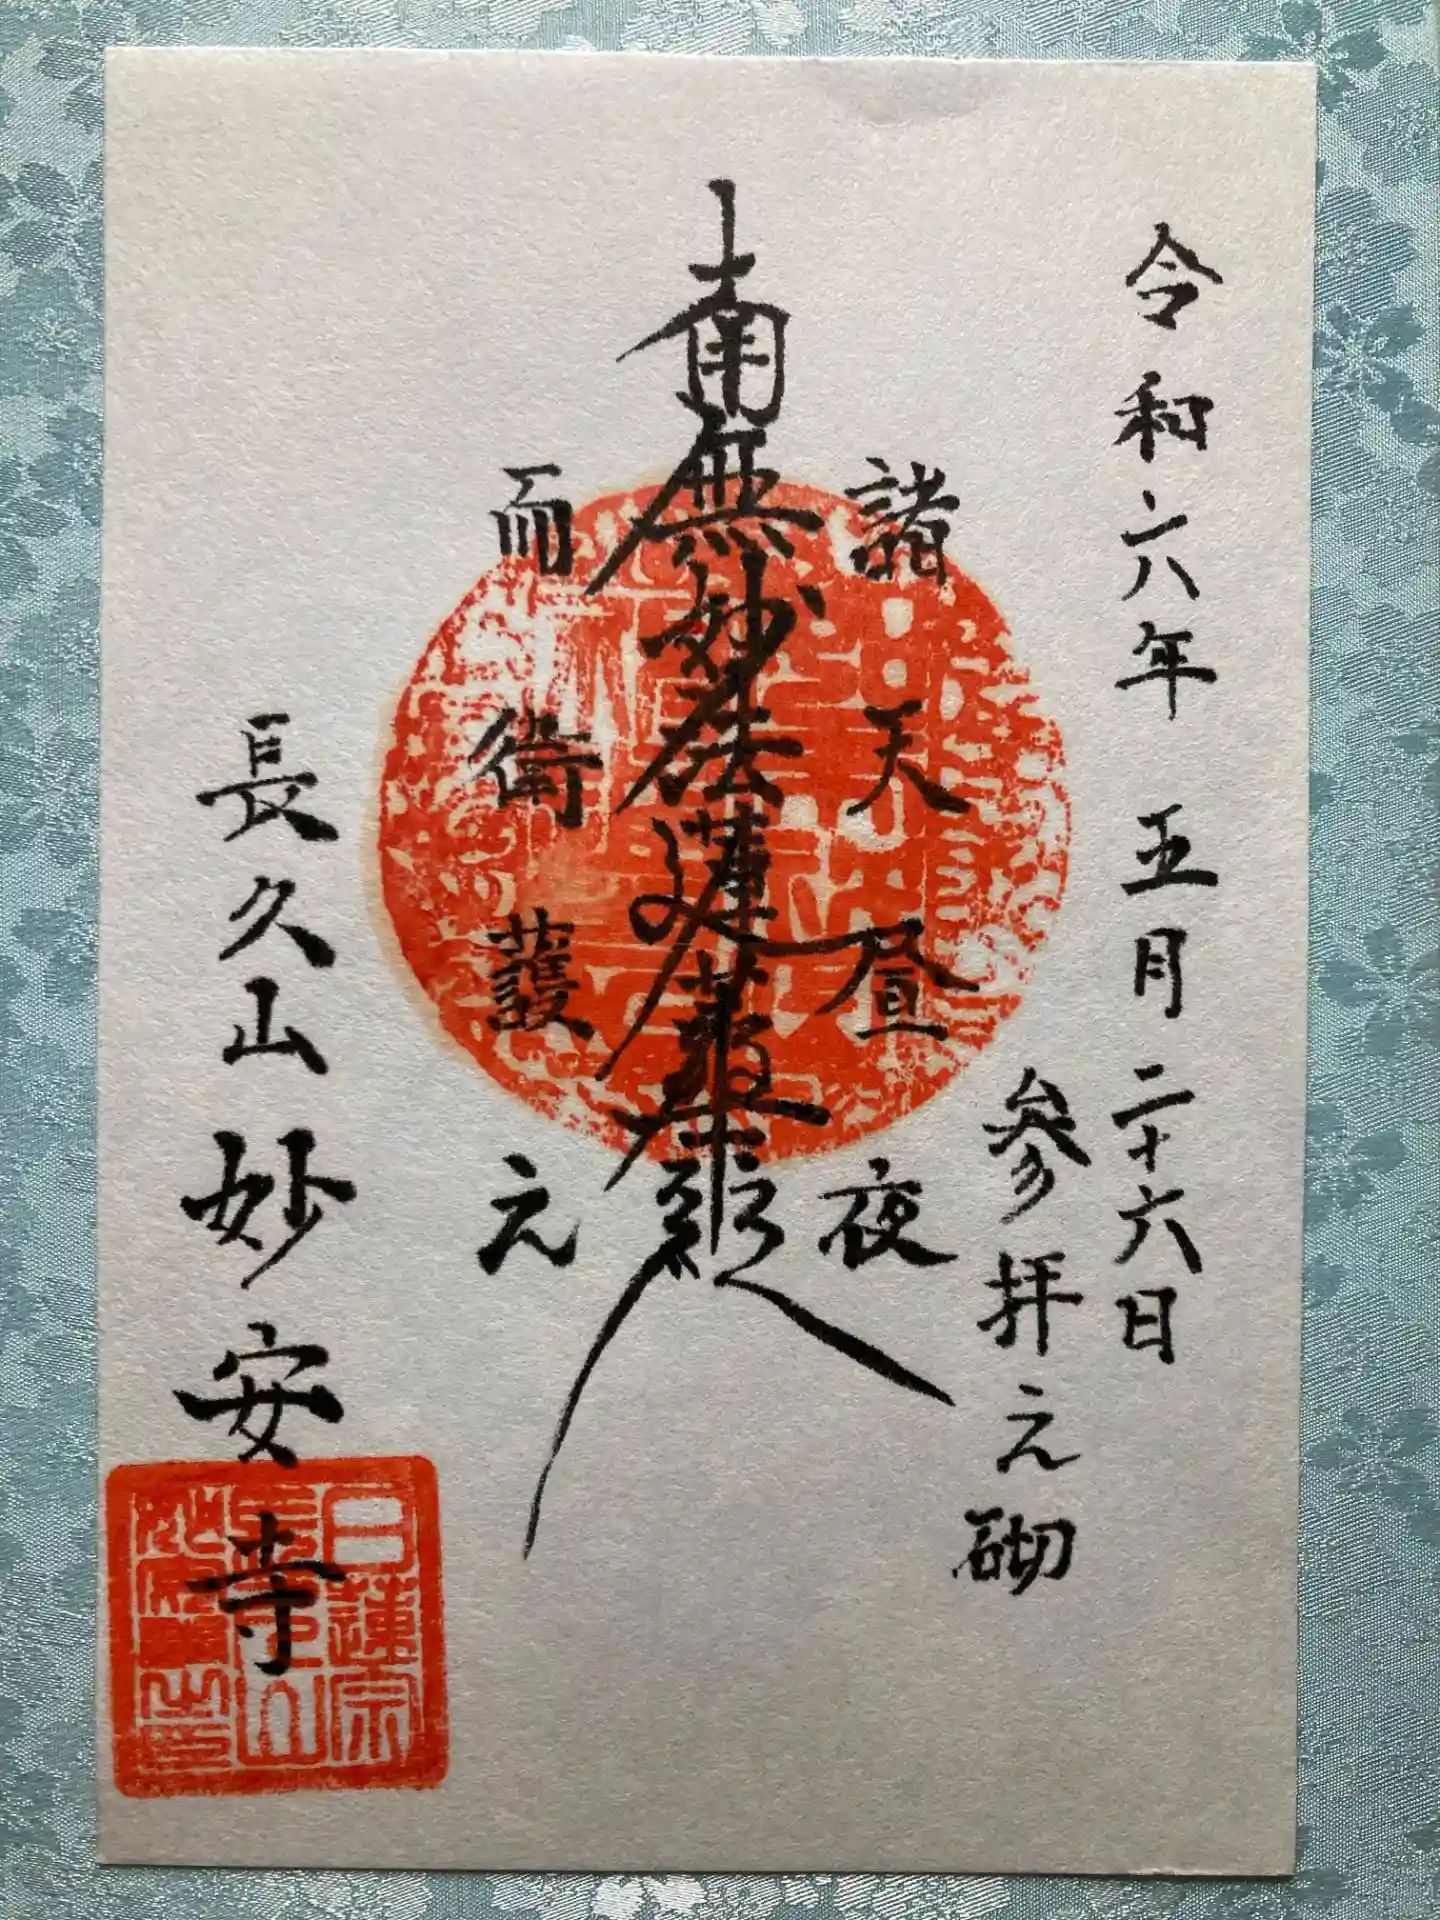 令和六年 五月二十六日
参拝之砌
諸天昼夜
南無妙法蓮華経
而衛護之
長久山妙安寺
日蓮宗